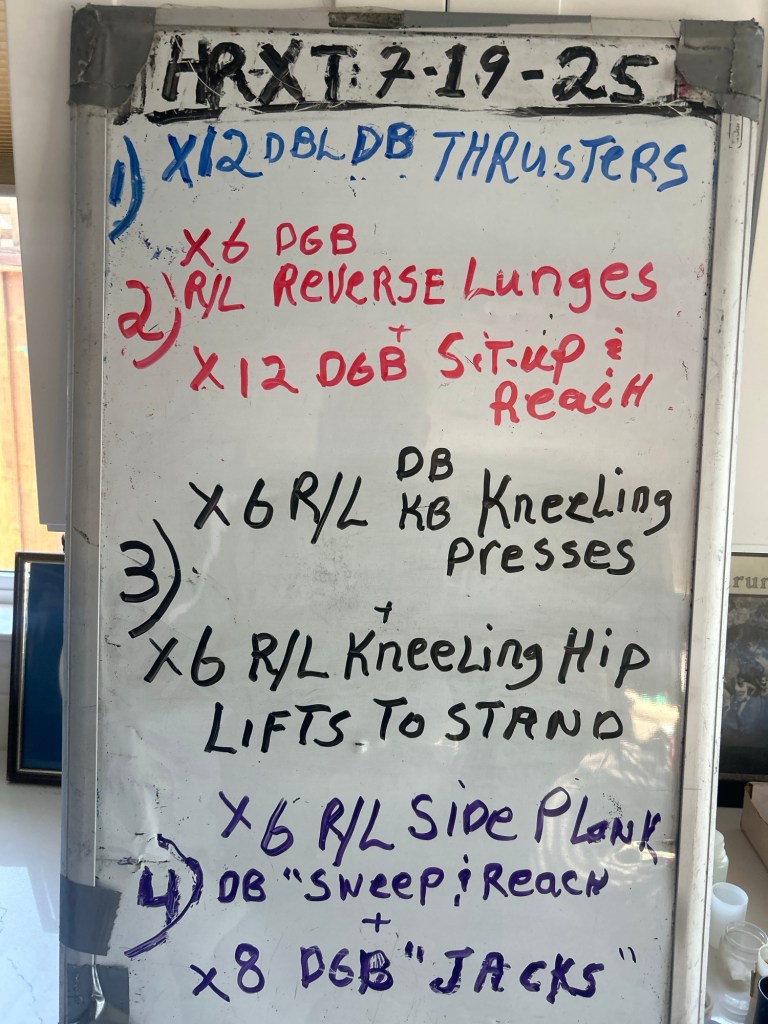 HRXT: 7-19-25
1) X12 DBL DB THRUSTERS
X6 DGB
2) R/L REVERSE Lunges
+
X12 DGB SIT-UP &
REACH
X6 R/L DB KB Kneeling
Presses
3)
+
X6 R/L Kneeling Hip
LIFTS TO STAND
X6 R/L SIDE PLANK
4) DB "SWEEP & REACH
+
X8 DGB "JACKS"